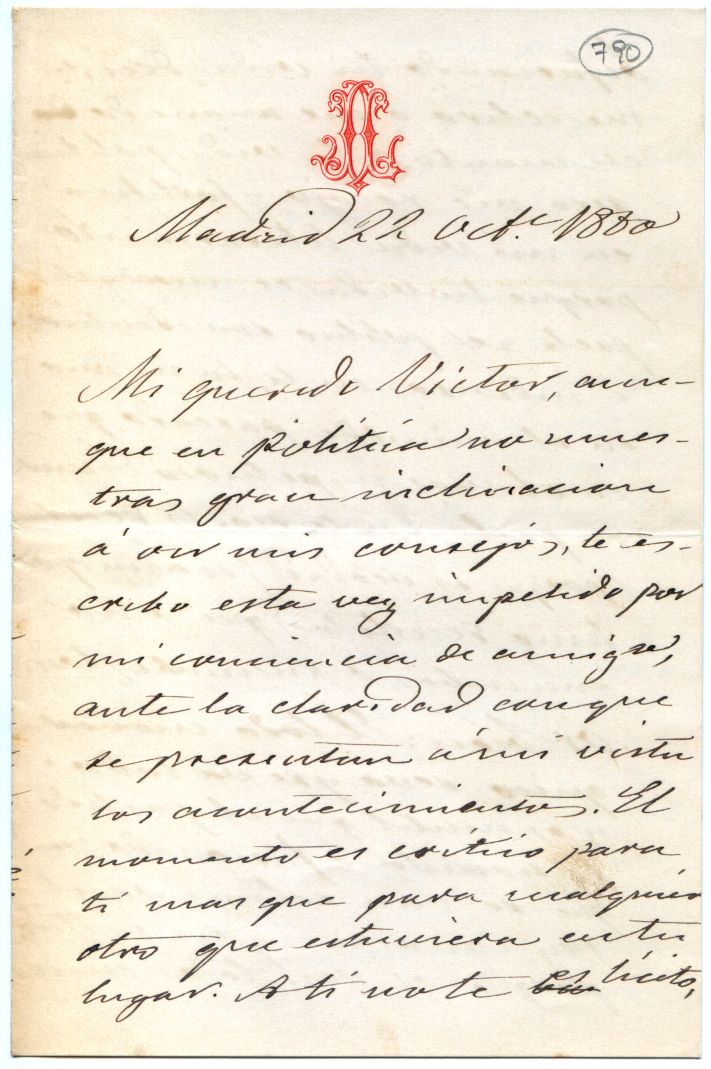 790
Madrid 22 Oct.e 1880
Mi querido Victor, aun-
que en politica no mues-
tras gran inclinacion
á oir mis consejos, te es-
cribo esta vez impelido por
mi conciencia de amigo,
ante la claridad con que
se presentan á mi vista
los acontecimientos. El
momento es critico para
ti mas que para cualquier
otro que estuviera en tu
lugar. A ti no te es licito,